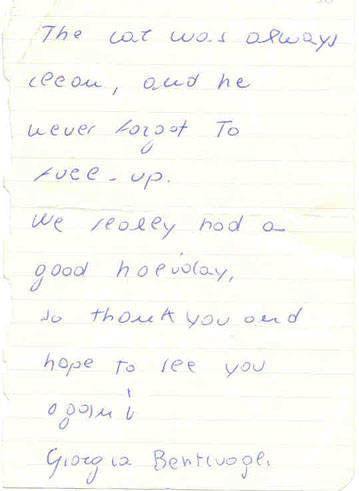 The car was always
clean, and he
never forgot to
fuel-up.
We really had a
good holiday,
so thank you and
hope to see you
again!
Giorgia Bentivogli